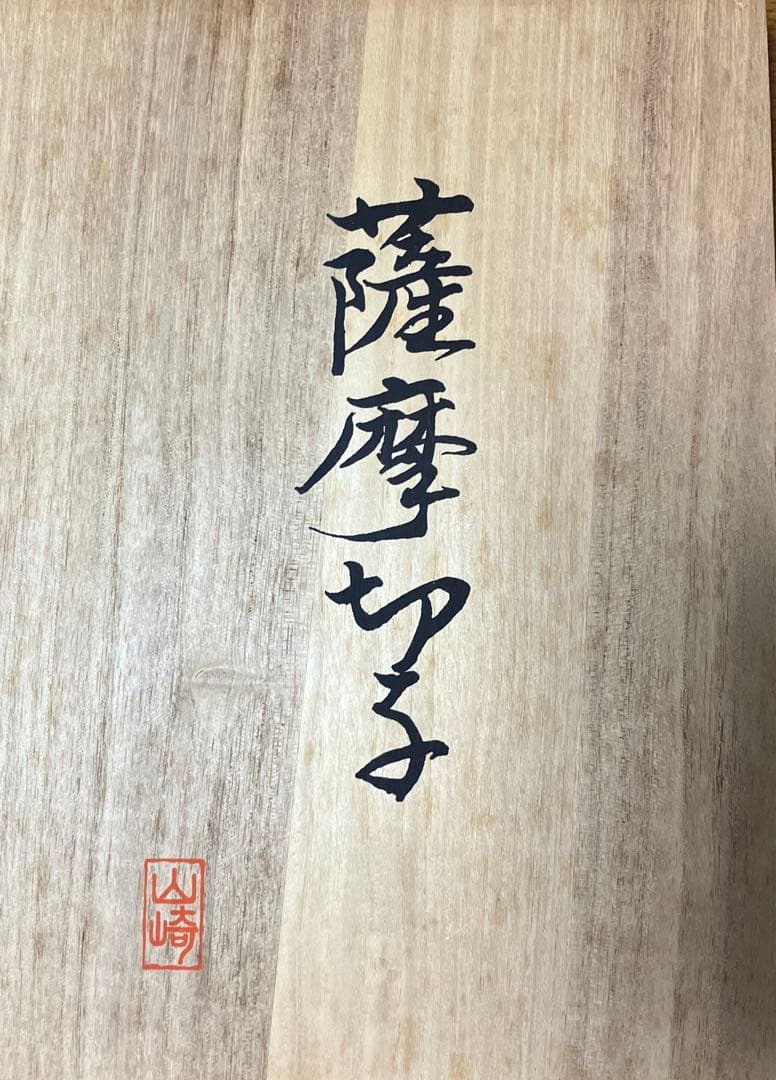 薩摩切子
山崎